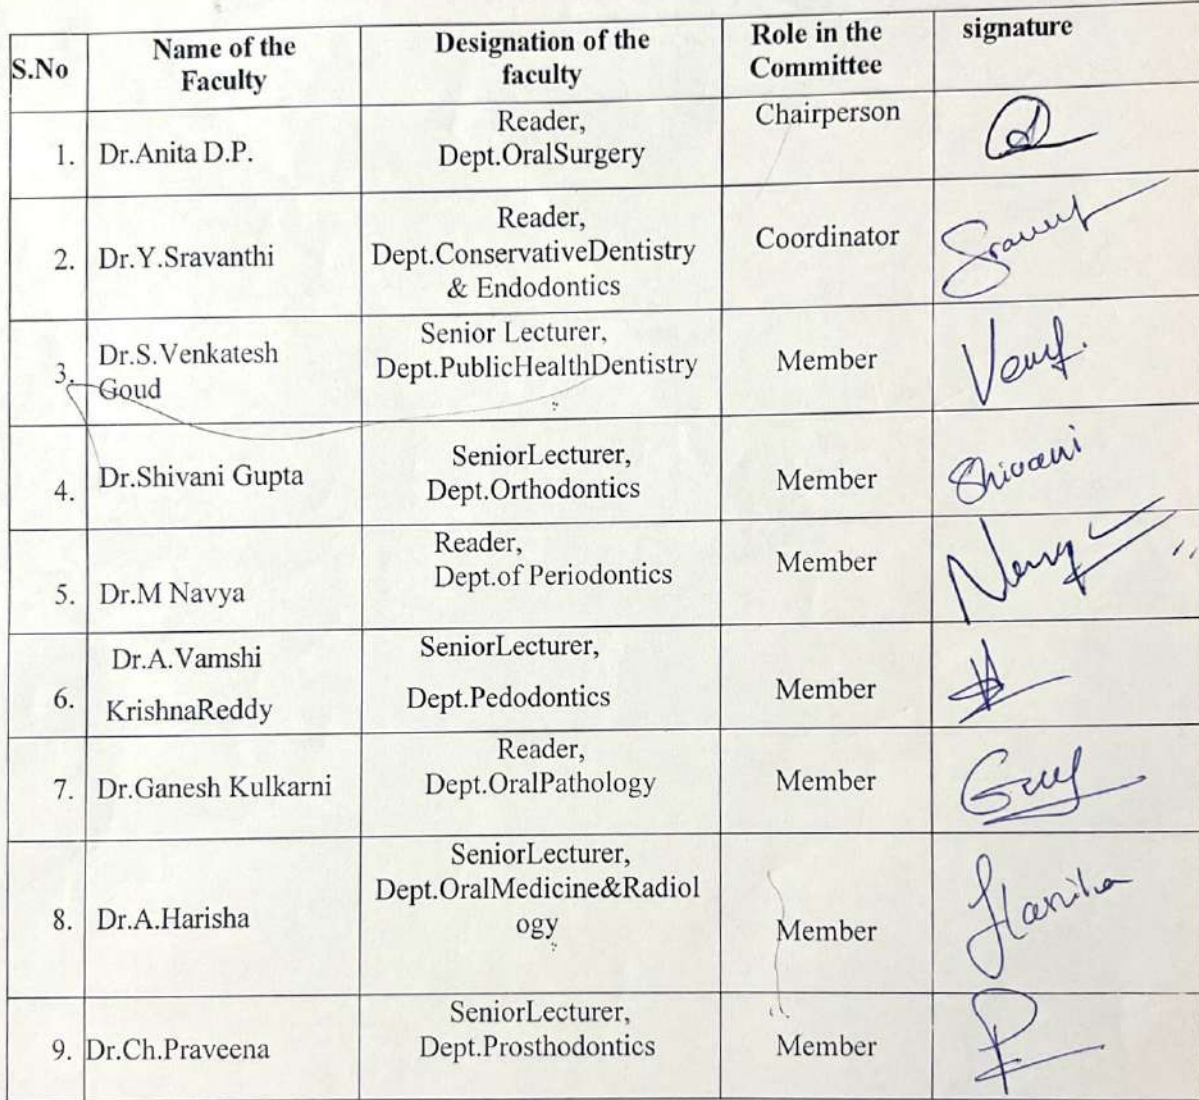 S.No
Name of the
Faculty
Designation of the
faculty
Role in the
Committee
signature
1.
Dr.Anita D.P.
Reader,
Dept.OralSurgery
Chairperson
2.
Dr.Y.Sravanthi
Reader,
Dept.ConservativeDentistry
& Endodontics
Coordinator
3.
Dr.S.Venkatesh
Goud
Senior Lecturer,
Dept.PublicHealthDentistry
Member
4.
Dr.Shivani Gupta
SeniorLecturer,
Dept.Orthodontics
Member
Shivani
5.
Dr.M Navya
Reader,
Dept.of Periodontics
Member
6.
Dr.A.Vamshi
KrishnaReddy
SeniorLecturer,
Dept.Pedodontics
Member
7.
Dr.Ganesh Kulkarni
Reader,
Dept.OralPathology
Member
8.
Dr.A.Harisha
SeniorLecturer,
Dept.OralMedicine&Radiol
ogy
Member
9.
Dr.Ch.Praveena
SeniorLecturer,
Dept.Prosthodontics
Member